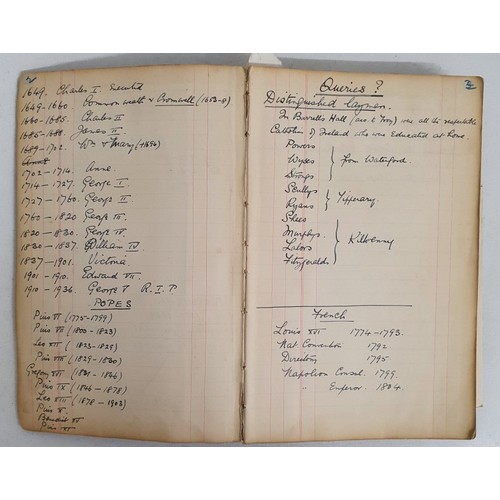 2
1649. Charles I. Executed
1649-1660. Commonwealth & Cromwell (1653-8)
1660-1685. Charles II
1685-1688. James II.
1689-1702. Wm & Mary (+1694)
1702-1714. Anne.
1714-1727. George I.
1727-1760. George II.
1760-1820 George III.
1820-1830. George IV
1830-1837. William IV
1837-1901. Victoria.
1901-1910. Edward VII.
1910-1936. George V R.I.P
POPES
Pius VI (1775-1799)
Pius VII (1800-1823)
Leo XII (1823-1828)
Pius VIII (1829-1830)
Gregory XVI (1831-1846)
Pius IX (1846-1878)
Leo XIII (1878-1903)
Pius X.
Benedict XV
Pius XI
Queries?
Distinguished laymen.
In Burrells Hall were all the respectable
Catholics of Ireland who were educated at home
Powers
Wyses } from Waterford.
Strongs
Scullys
Ryans } Tipperary.
Shees
Murphys
Lalors } Kilkenny
Fitzgeralds
French
Louis XVI 1774-1793.
Nat. Convention 1792.
Directory 1795
Napoleon Consul. 1799.
" Emperor. 1804.